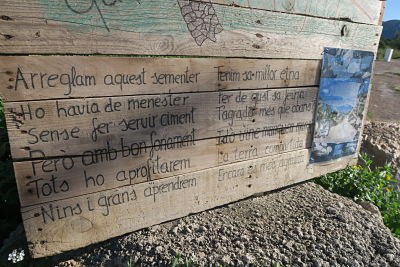 Arreglam aquest sementer
Ho havia de menester
Sense fer servir ciment
Però amb bon fonament
Tots ho aprofitarem
Nins i grans aprendrem
Tenim sa millor eina
Fer de gust sa feina
Tagrada més que abans
Idò vine
Sa terra
Encara més